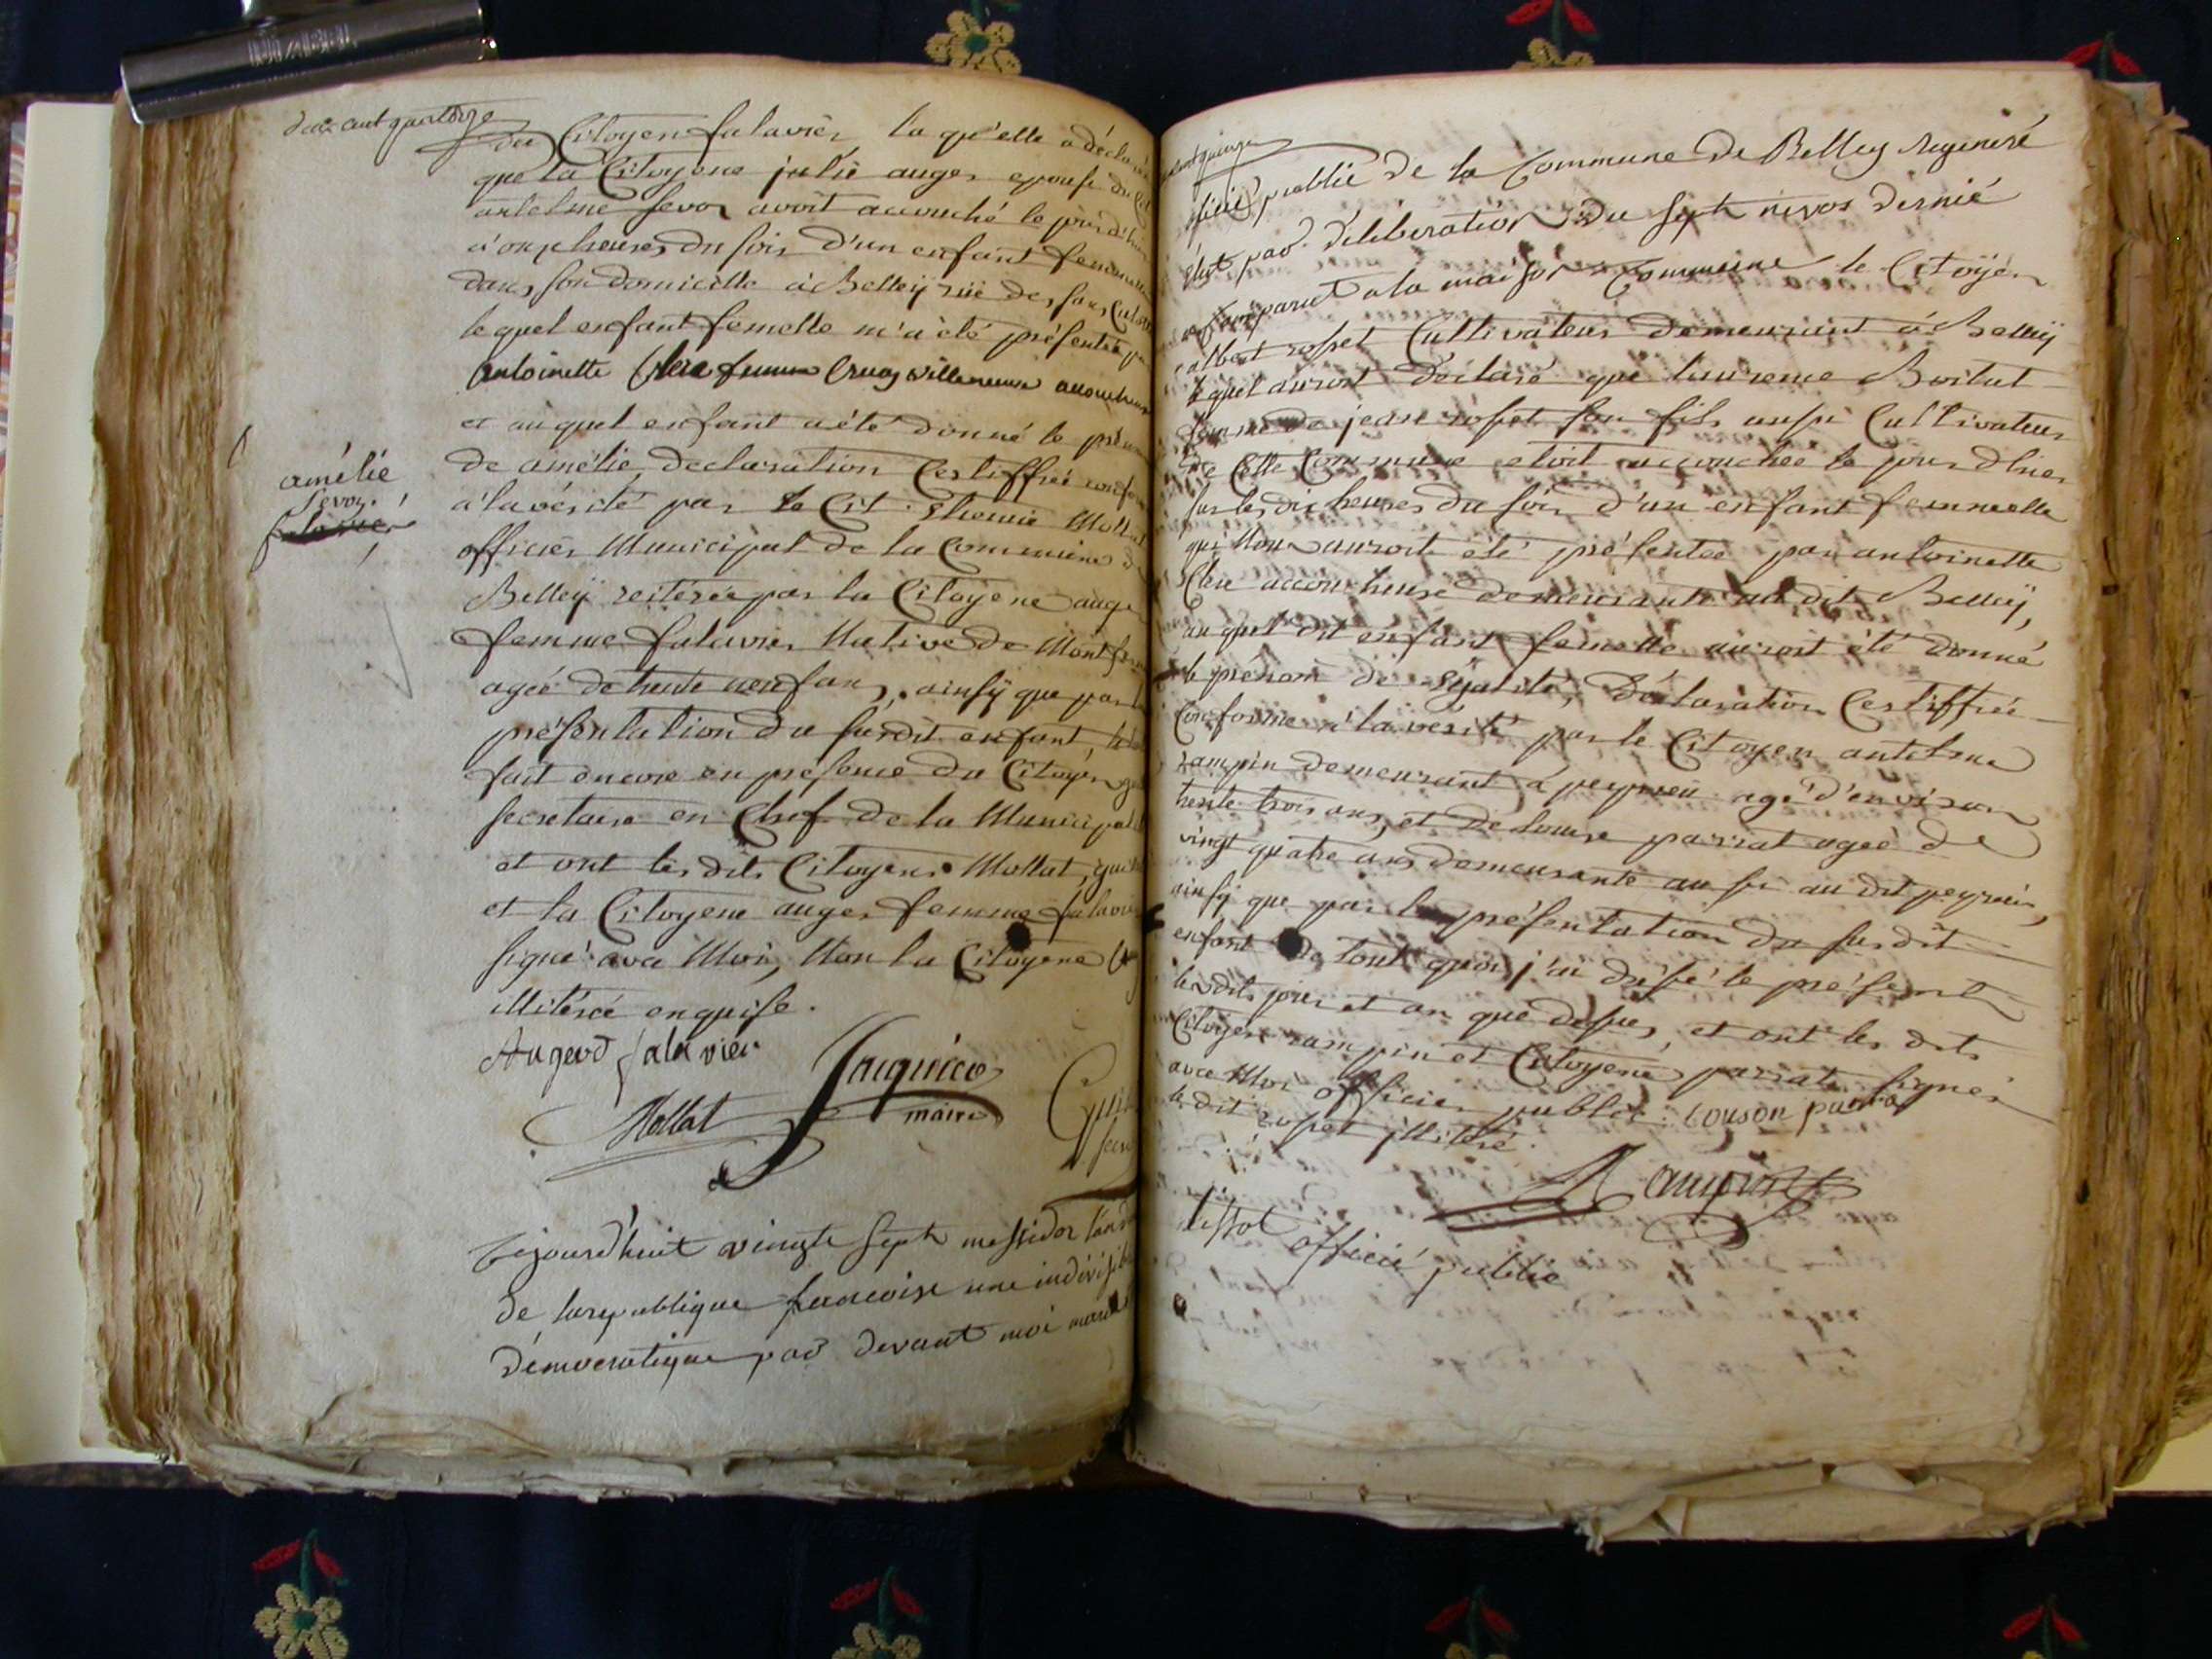 deux cent quatorze
du Citoyen falavier, la qu'elle a déclaré
que la Citoyene julie auger epouse du
antelme sevoz avoit accouché le jour d'hier
à onze heures du soir d'un enfant femmelle
dans son domicille à Belleÿ rüe des sans Culottes
lequel enfant femelle m'a été présenté par
antoinette Clerc femme Cruas villeneuve
et auquel enfant a été donné le prénom
de amélie, declaration Certiffiée conforme
amélie
sevoz
falavier
à la vérité par le Cit. Mollat
officier Municipal de la Commune de
Belleÿ reitérée par la Citoÿene auger
femme falavier Native de
agée de trente neuf ans, ainsÿ que par la
présentation du susdit enfant,
fait encore en présence du Citoyen
secretaire en Chef de la Municipalité
et ont les dits Citoyens Mollat,
et la Citoyene auger femme falavier
signé avec Moi, Non la Citoyene
illitérée enquise.
Augerd falavier
Mollat
maire
Cejourd'huit vingte sept messidor l'an
de la republique francoise une indivisible
démocratique par devant moi
deux cent quinze
publie de la Commune de Belley régénéré
élut par déliberation du sept nivos dernié
est comparut a la maison Commune le Citoÿen
rosset Cultivateur demeurant à Belleÿ
lequel auroit déclaré que
femme de jean rosset son fils aussi Cultivateur
de Cette Commune etoit accouchée le jour d'hier
sur les dix heures du soir d'un enfant femmelle
qui Nous auroit été présentée par antoinette
Clerc accoucheuse demeurante au dit Belleÿ,
au quel dit enfant femelle auroit été donné
le prénom de Egalité, Déclaration Certiffiée
Conforme à la vérité par le Citoyen antelme
rampin demeurant à peyrieu agé d'environ
trente trois ans, et de louise parrat agée de
vingt quatre ans demeurante aussi au dit peyrieu,
ainsÿ que par la présentation du susdit
enfant de tout quoi j'ai dréssé le présent
les dits jour et an que dessus, et ont les dits
Citoyen rampin et Citoyene parrat signés
avec Moi officier public. Louson
le dit rosset illitéré.
Rampin
tissot officié public